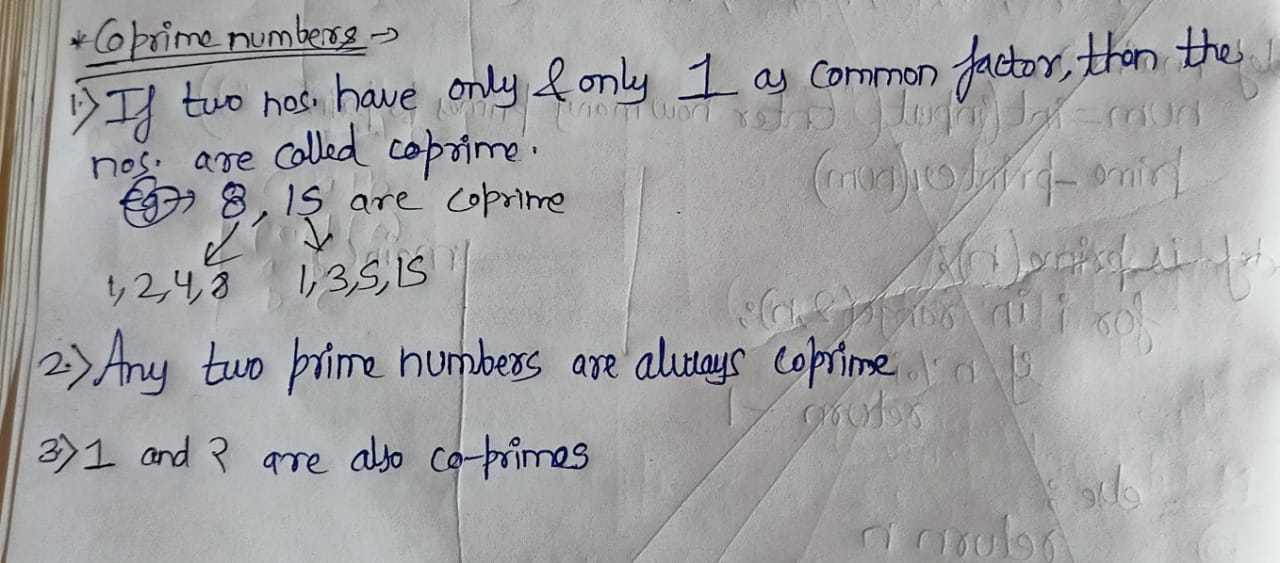 * Coprime numbers →
1.) If two nos. have only & only 1 as common factor, then the
nos. are called coprime.
Eg→ 8, 15 are coprime
1,2,4,8 1,3,5,15
2.) Any two prime numbers are always coprime
3) 1 and 2 are also co-primes